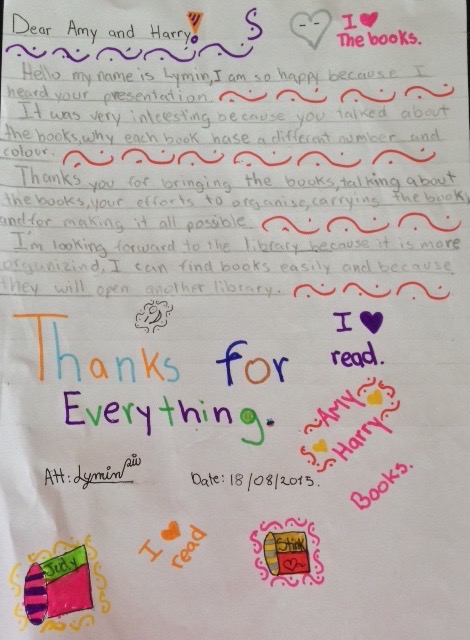 Dear Amy and Harry!
S
I ♥
The books.
Hello my name is Lymin, I am so happy because I
heard your presentation.
It was very inteesting because you talked about
the books, why each book hase a different number and
colour.
Thanks you for bringing the books, talking about
the books, your efforts to organise, carrying the book,
and for making it all possible.
I'm looking forward to the library because it is more
organizind, I can find books easily and because
they will open another library.
Thanks for
Everything.
I ♥
read.
Amy
Harry
Books.
Att: Lymin
Date: 18/08/2015.
I ♥
read
Judy
Stink